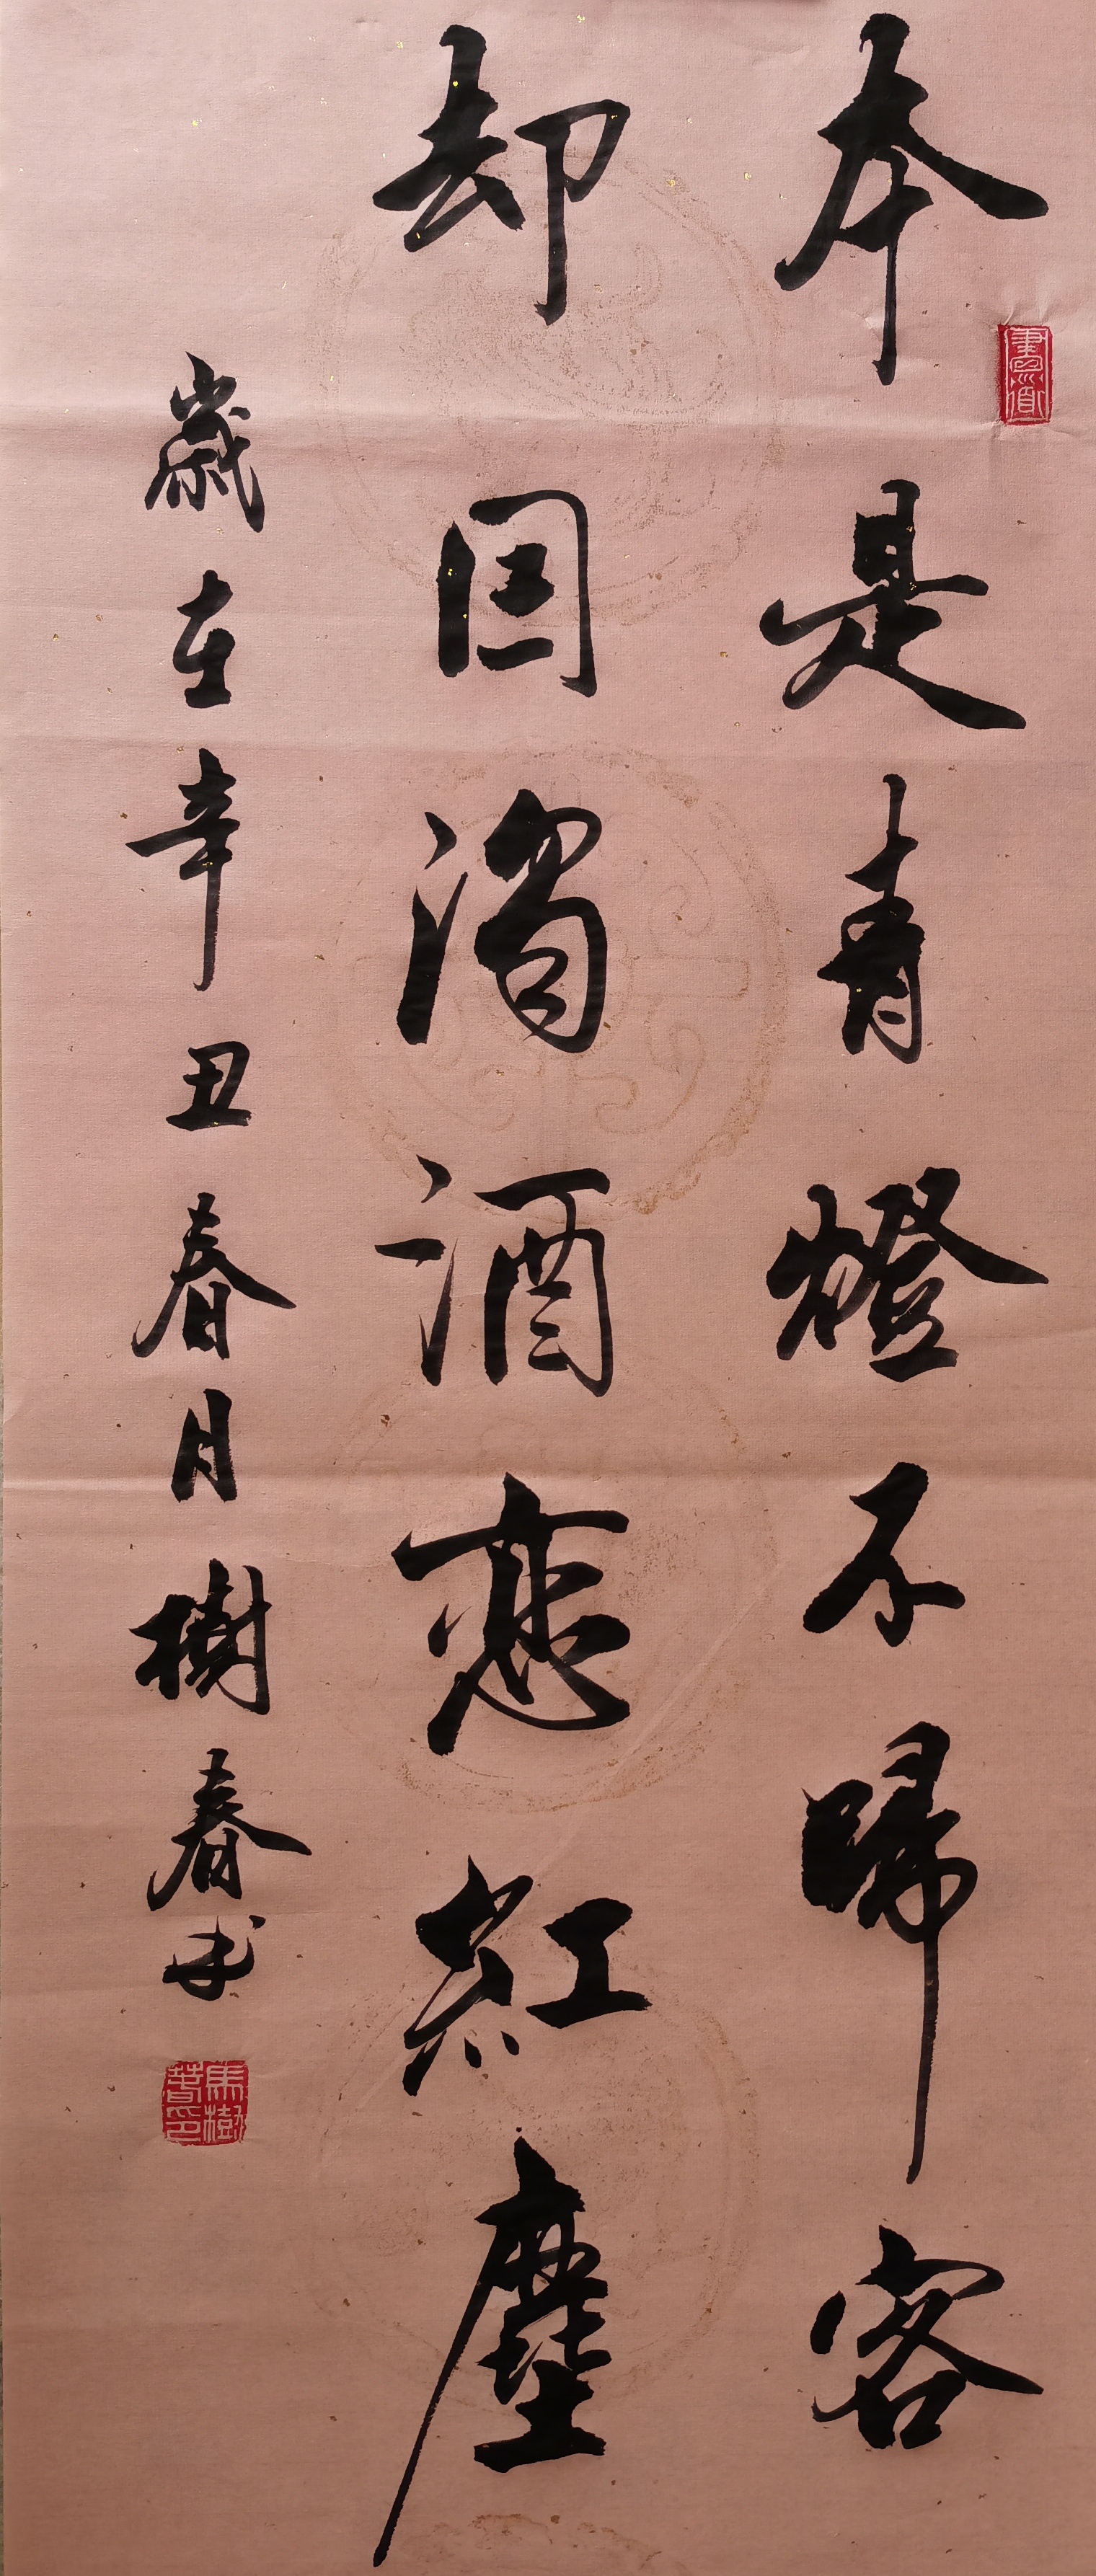 本是青燈不歸客
却因濁酒戀紅塵
歲在辛丑春月樹春书
馬樹春印